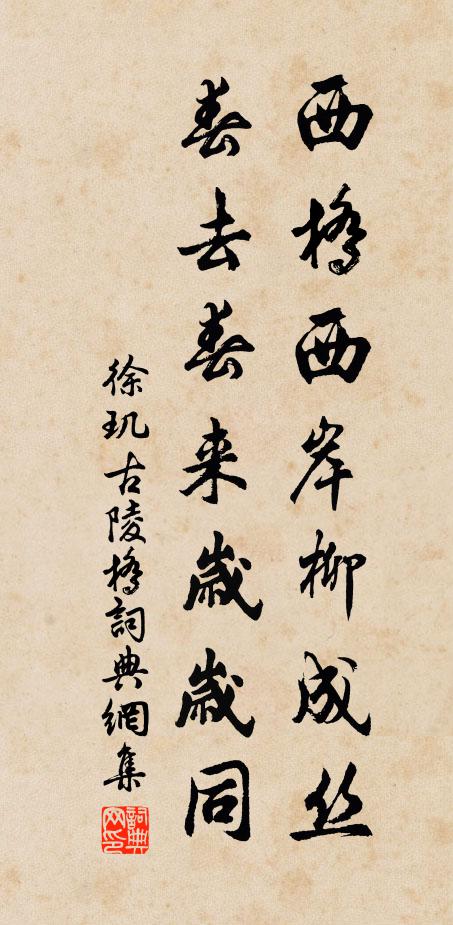 西橋西岸柳成丝
春去春来歲歲同
徐玑古陵橋詞典網集
詞典网印